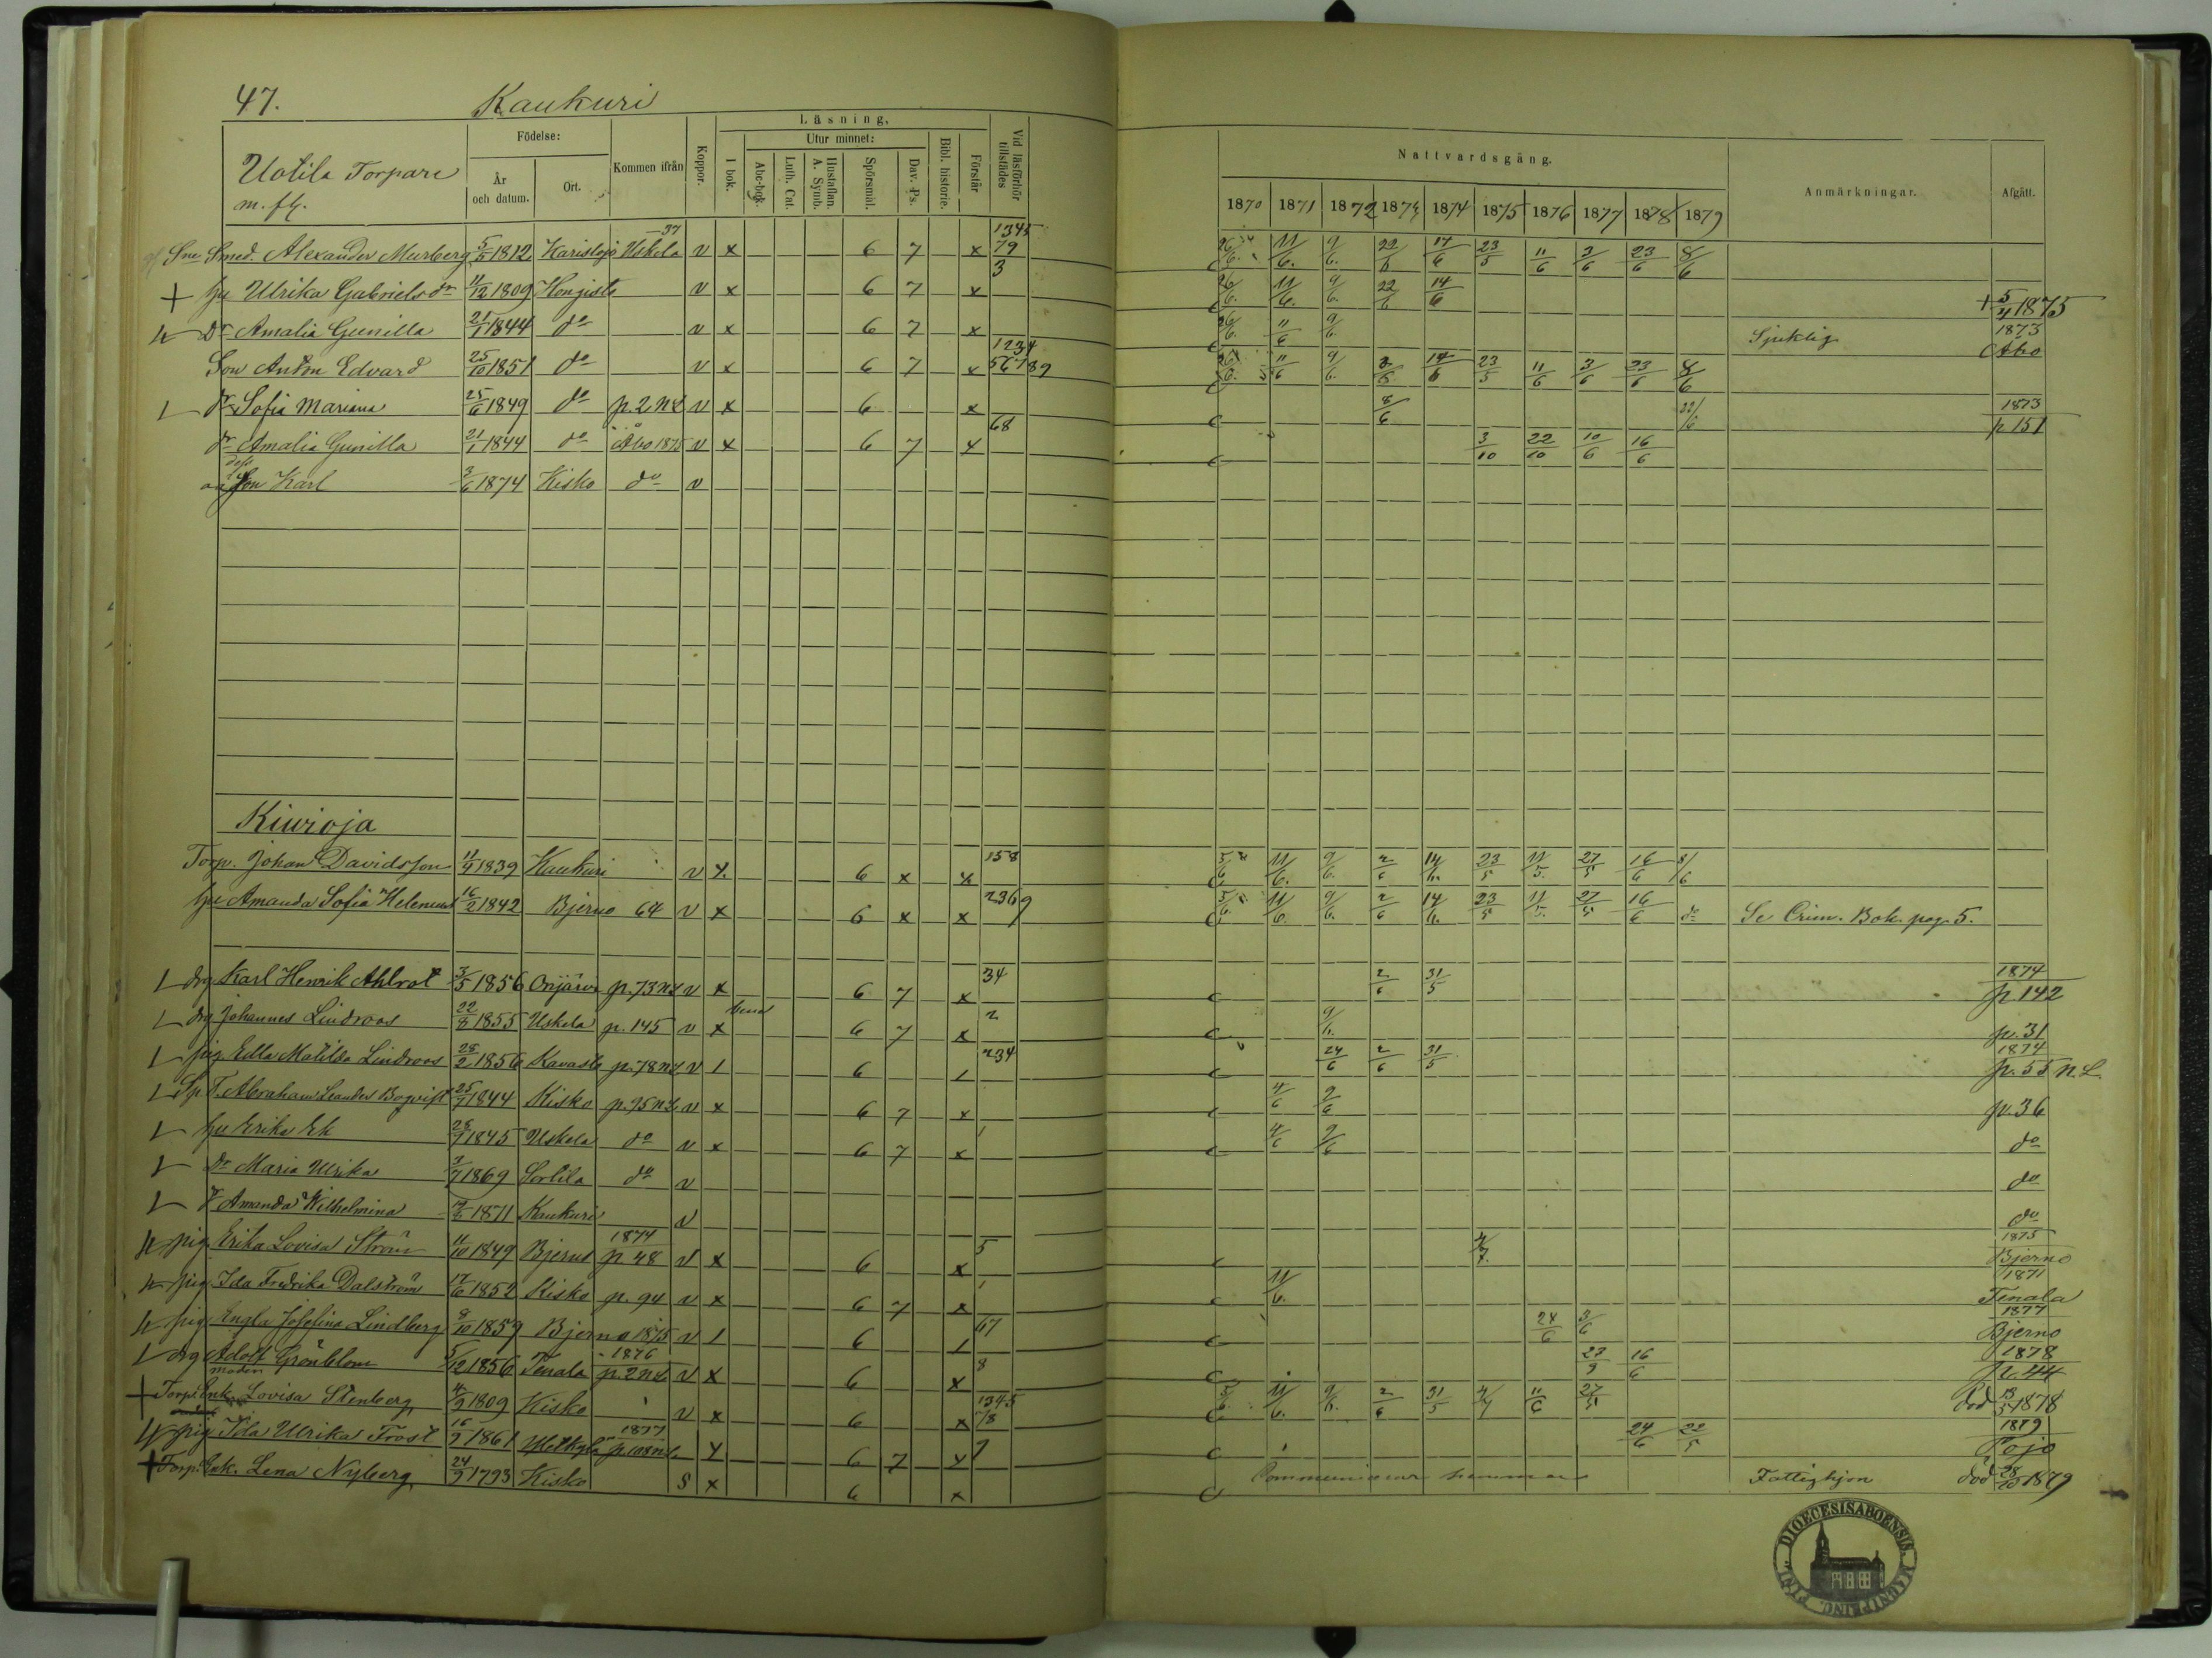 47. Kaukuri
Uotila Torpare
m. fl.
Födelse:
År och datum.
Ort.
Kommen ifrån
Koppor.
Läsning,
I bok.
Utur minnet:
Abc-bok.
Luth. Cat.
Hustaflan. A. Symb.
Spörsmål.
Dav. Ps.
Bibl. historie.
Förstår
Vid läsförhör tillstädes
Nattvardsgång.
1870 1871 1872 1873 1874 1875 1876 1877 1878 1879
Anmärkningar.
Afgått.
Smed. Alexander Murberg 5/5 1812 Karislojo Uskela 37 v x 6 7 x 1345 79 11/6. 9/6. 22/6 14/6 23/5 11/6 3/6 23/6 8/6
+ hu Ulrika Gabrielsdr 11/12 1809 Hongisto v x 6 7 x 3 26/6. 11/6. 9/6. 22/6 14/6 + 5/4 1875
Dr Amalia Gunilla 21/1 1844 do v x 6 7 x 26/6. 11/6 9/6. Sjuklig 1873 Åbo
Son Anton Edvard 25/10 1851 do v x 6 7 x 1234 56789 11/6 9/6. 14/6 23/5 11/6 3/6 23/6 8/6
dr Sofia Mariana 25/6 1849 do p. 2 NL v x 6 x 8/6 1873 p 151
dr Amalia Gunilla 21/1 1844 do Åbo 1875 v x 6 7 x 68 3/10 22/10 10/6 16/6
son Karl 3/6 1874 Kisko do v
Kiwioja
Torp. Johan Davidsson 11/9 1839 Kaukuri v x 6 x x 158 11/6. 9/6. 2/6 14/6. 23/5 11/5. 27/5 16/6 8/6
hu Amanda Sofia Helenius 16/2 1842 Bjerno 64 v x 6 x x 2369 5/6. 11/6. 9/6. 2/6 14/6. 23/5 11/5. 27/5 16/6 do Se Crim. Bok pag 5.
drg Karl Henrik Ahlrot 3/5 1856 Orijärvi p. 73 NL v x 6 7 x 34 2/6 31/5 1874 p. 142
drg Johannes Lindroos 22/8 1855 Uskela p. 145 v x 6 7 x 2 9/6. p. 31
pig Edla Matilda Lindroos 28/2 1856 Kavasto p. 78 NL v 1 6 1 234 24/6 2/6 31/5 1874 p. 55 N.L.
Sp T. Abraham Leander Boqvist 25/7 1844 Kisko p. 75 NL v x 6 7 x 4/6 9/6 p. 36
hu Erika Ek 28/9 1845 Uskela do v x 6 7 x 1 4/6 9/6 do
Dr Maria Ulrika 3/7 1869 Sorlila do v do
d Amanda Wilhelmina 1871 Kaukuri v do
pig Erika Lovisa Ström 11/10 1849 Bjerno 1874 p 48 v x 6 x 5 4/7. 1875 Bjerno
pig Ida Fredrika Dalström 17/6 1852 Kisko p. 94 v x 6 7 x 1 11/6. 1871 Tenala
pig Engla Josefina Lindberg 9/10 1859 Bjerno 1875 v 1 6 1 67 24/6 3/6 1877 Bjerno
drg Adolf Grönblom 5/12 1856 Tenala 1876 p. 2 NL v x 6 x 8 27/9 16/6 1878 p. 44
+ Torp. Enk. moder Lovisa Stenberg 4/9 1809 Kisko v x 6 x 1345 78 11/6. 9/6. 2/6 31/5 4/7 11/6 27/5 död 13/5 1878
pig Ida Ulrika Frost 16/9 1861 1877 p. 108 NL x 6 7 x 9 24/6 22/5 1879 Pojo
+ Torp. Enk. Lena Nyberg 24/9 1793 Kisko S x 6 x Communicerar hemma Fattighjon död 28/10 1879
DIOECESIS ABOENSIS. MAGNI PRINC. FINL.